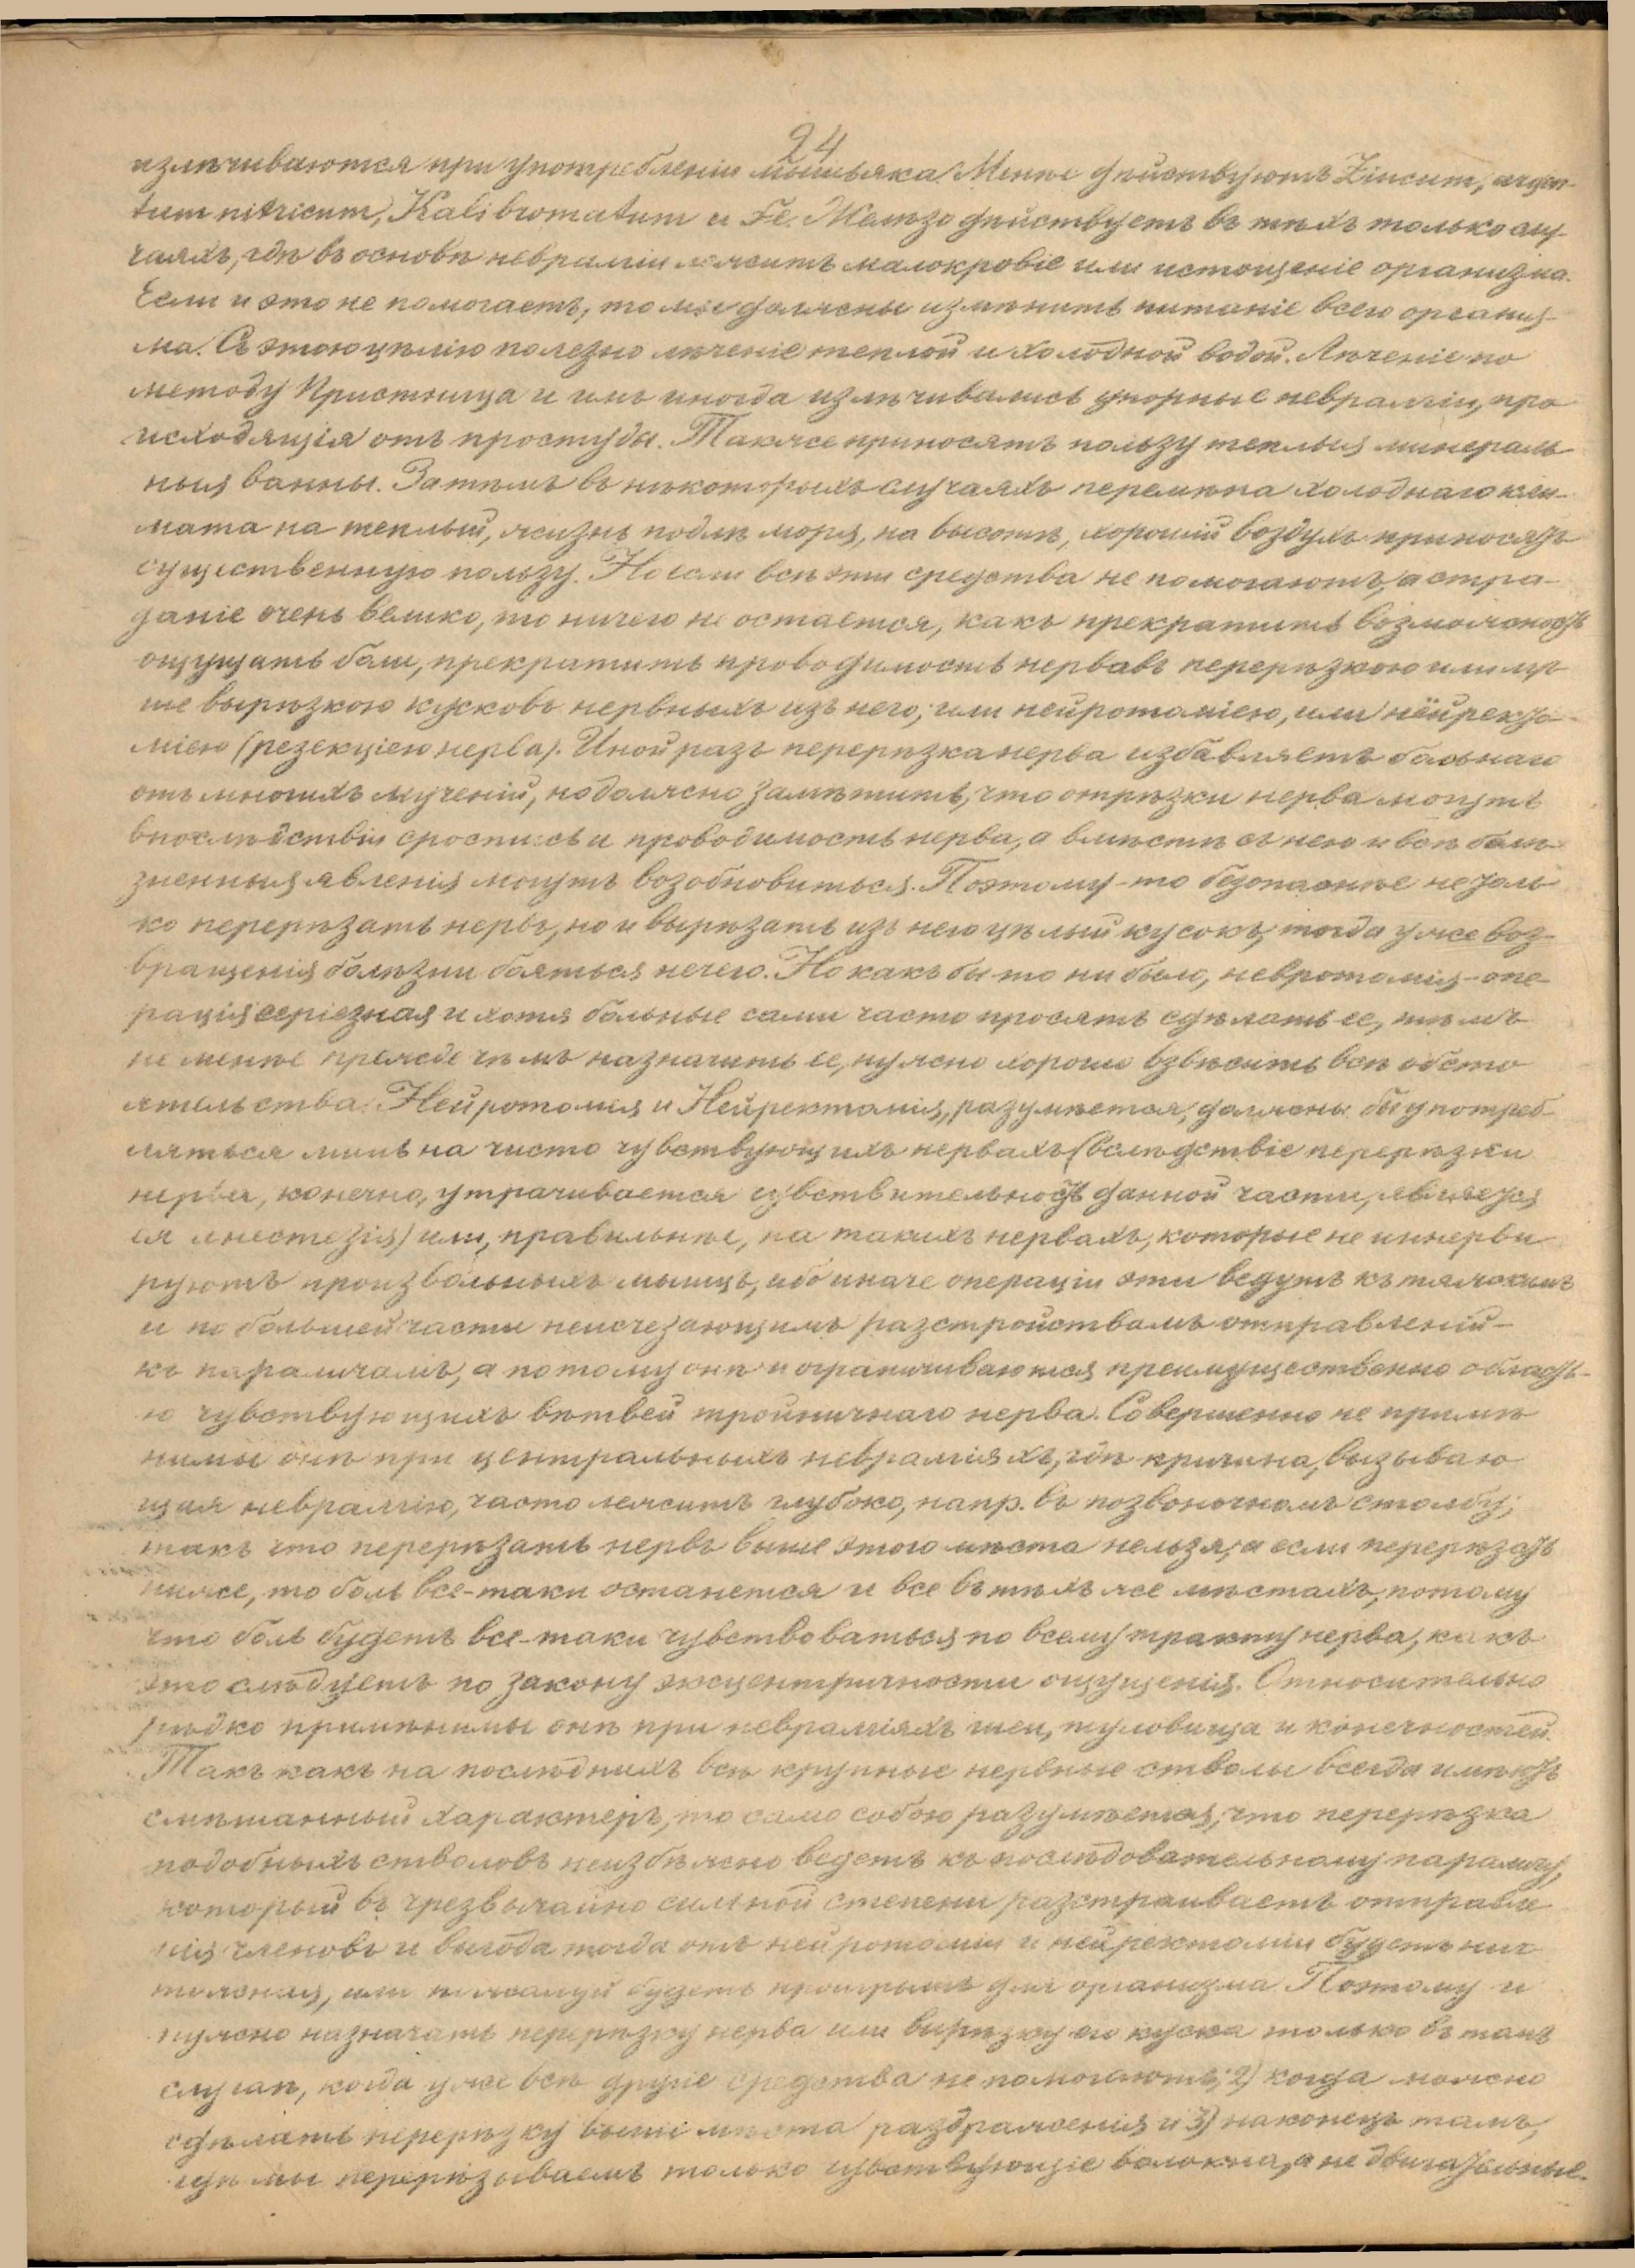 94
излѣчиваются при употребленіи мышьяка. Менѣе дѣйствуютъ Zincum, argen-
tum nitricum, Kali bromatum и Fe. Желѣзо дѣйствуетъ въ тѣхъ только слу-
чаяхъ, гдѣ въ основѣ невралгіи лежитъ малокровіе или истощеніе организма.
Если и это не помогаетъ, то мы должны измѣнить питаніе всего организ-
ма. Съ этою цѣлію полезно лѣченіе теплой и холодной водой. Лѣченіе по
методу Пристница и имъ иногда излѣчивались упорные невралгіи, про
исходящія отъ простуды. Также приносятъ пользу теплыя минераль
ныя ванны. Затѣмъ въ нѣкоторыхъ случаяхъ перемѣна холоднаго кли-
мата на теплый, жизнь подлѣ моря, на высотѣ, хорошій воздухъ приносятъ
существенную пользу. Но если всѣ эти средства не помогаютъ, а стра-
даніе очень велико, то ничего не остается, какъ прекратить возможность
ощущать боли, прекратить проводимость нервовъ перерѣзкою или луч
ше вырѣзкою кусковъ нервныхъ изъ него; или нейротоміею, или нейректо-
міею (резекціею нерва). Иной разъ перерѣзка нерва избавляетъ больнаго
отъ многихъ мученій, но должно замѣтить, что отрѣзки нерва могутъ
впослѣдствіи сростись и проводимость нерва, а вмѣстѣ съ нею и всѣ болѣ-
зненныя явленія могутъ возобновиться. Поэтому-то безопаснѣе не толь
ко перерѣзать нервъ, но и вырѣзать изъ него цѣлый кусокъ, тогда уже воз-
вращенія болѣзни бояться нечего. Но какъ бы то ни было, невротомія - опе-
рація серіезная и хотя больные сами часто просятъ сдѣлать ее, тѣмъ
не менѣе прежде чѣмъ назначить ее, нужно хорошо взвѣсить всѣ обсто
ятельства. Нейротомія и Нейректомія, разумѣется, должны бы употреб-
ляться лишь на чисто чувствующихъ нервахъ (вслѣдствіе перерѣзки
нерва, конечно, утрачивается чувствительность данной части, является
ея анестезія) или, правильнѣе, на такихъ нервахъ, которые не иннерви
руютъ произвольныхъ мышцъ, ибо иначе операціи эти ведутъ къ тяжкимъ
и по большей части неисчезающимъ разстройствамъ отправленій -
къ параличамъ, а потому онѣ и ограничиваются преимущественно областъ-
ю чувствующихъ вѣтвей тройничнаго нерва. Совершенно не примѣ
нимы онѣ при центральныхъ невралгіяхъ, гдѣ причина, вызываю
щая невралгію, часто лежитъ глубоко, напр. въ позвоночномъ столбу,
такъ что перерѣзать нервъ выше этого мѣста нельзя, а если перерѣзать
ниже, то боль все-таки останется и все въ тѣхъ же мѣстахъ, потому
что боль будетъ все-таки чувствоваться по всему тракту нерва, какъ
это слѣдуетъ по закону эксцентричности ощущенія. Относительно
рѣдко примѣнимы онѣ при невралгіяхъ шеи, туловища и конечностей.
Такъ какъ на послѣднихъ всѣ крупные нервные стволы всегда имѣютъ
смѣшанный характеръ, то само собою разумѣется, что перерѣзка
подобныхъ стволовъ неизбѣжно ведетъ къ послѣдовательному параличу,
который въ чрезвычайно сильной степени разстраиваетъ отправле
нія членовъ и выгода тогда отъ нейротоміи и нейректоміи будетъ нич
тожная, или пожалуй будетъ проигрышъ для организма Поэтому и
нужно назначать перерѣзку нерва или вырѣзку его куска только въ томъ
случаѣ, когда уже всѣ другіе средства не помогаютъ; 2) когда можно
сдѣлать перерѣзку выше мѣста раздраженія и 3) наконецъ тамъ,
гдѣ мы перерѣзываемъ только чувствующіе волокна, а не двигательные.